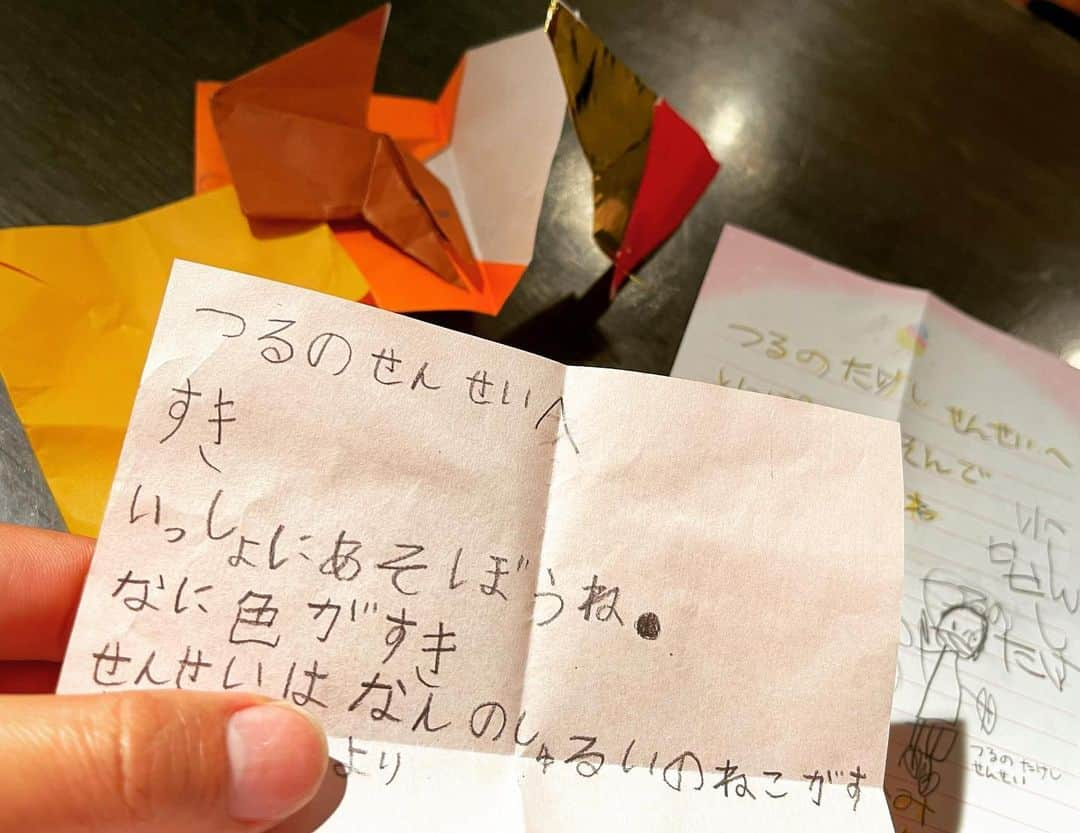 つるのせんせいへ
すき
いっしょにあそぼうね。
なに色がすき
せんせいはなんのしゅるいのねこがす
より
つるのたけしせんせいへ
そんで
ね
つるのたけし
せんせい